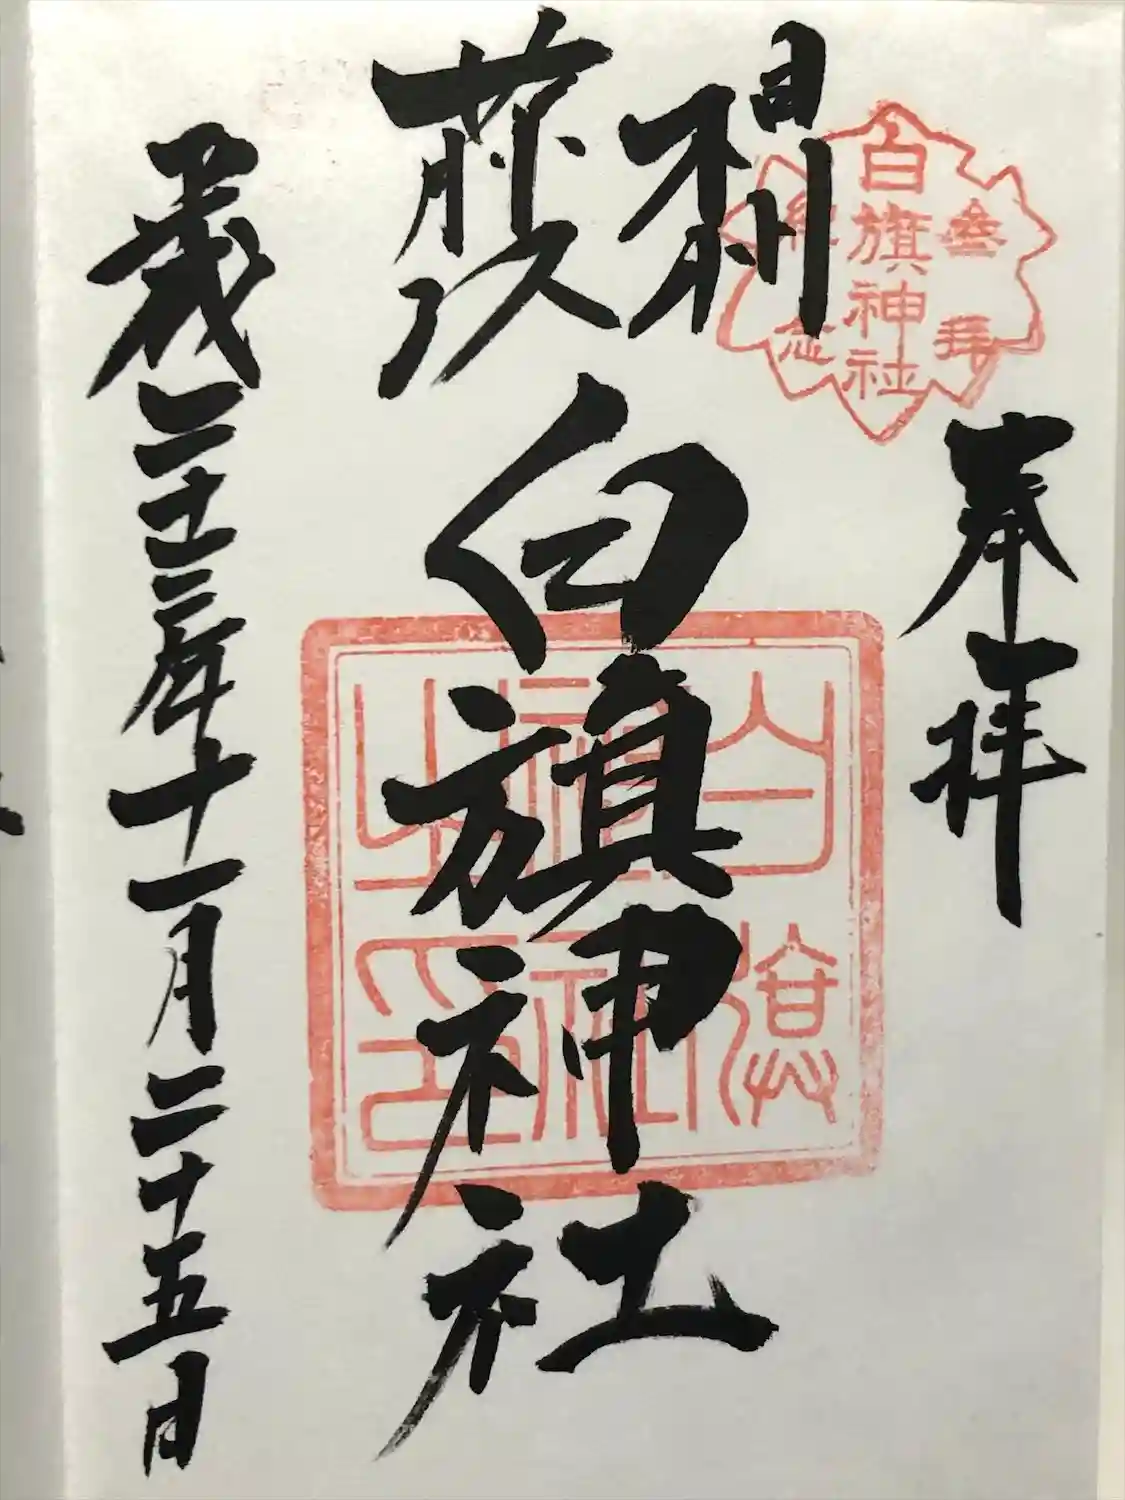 奉拝
参拝
白旗神社
相州
藤沢
白旗神社
白旗神社之印
平成二十三年十一月二十五日